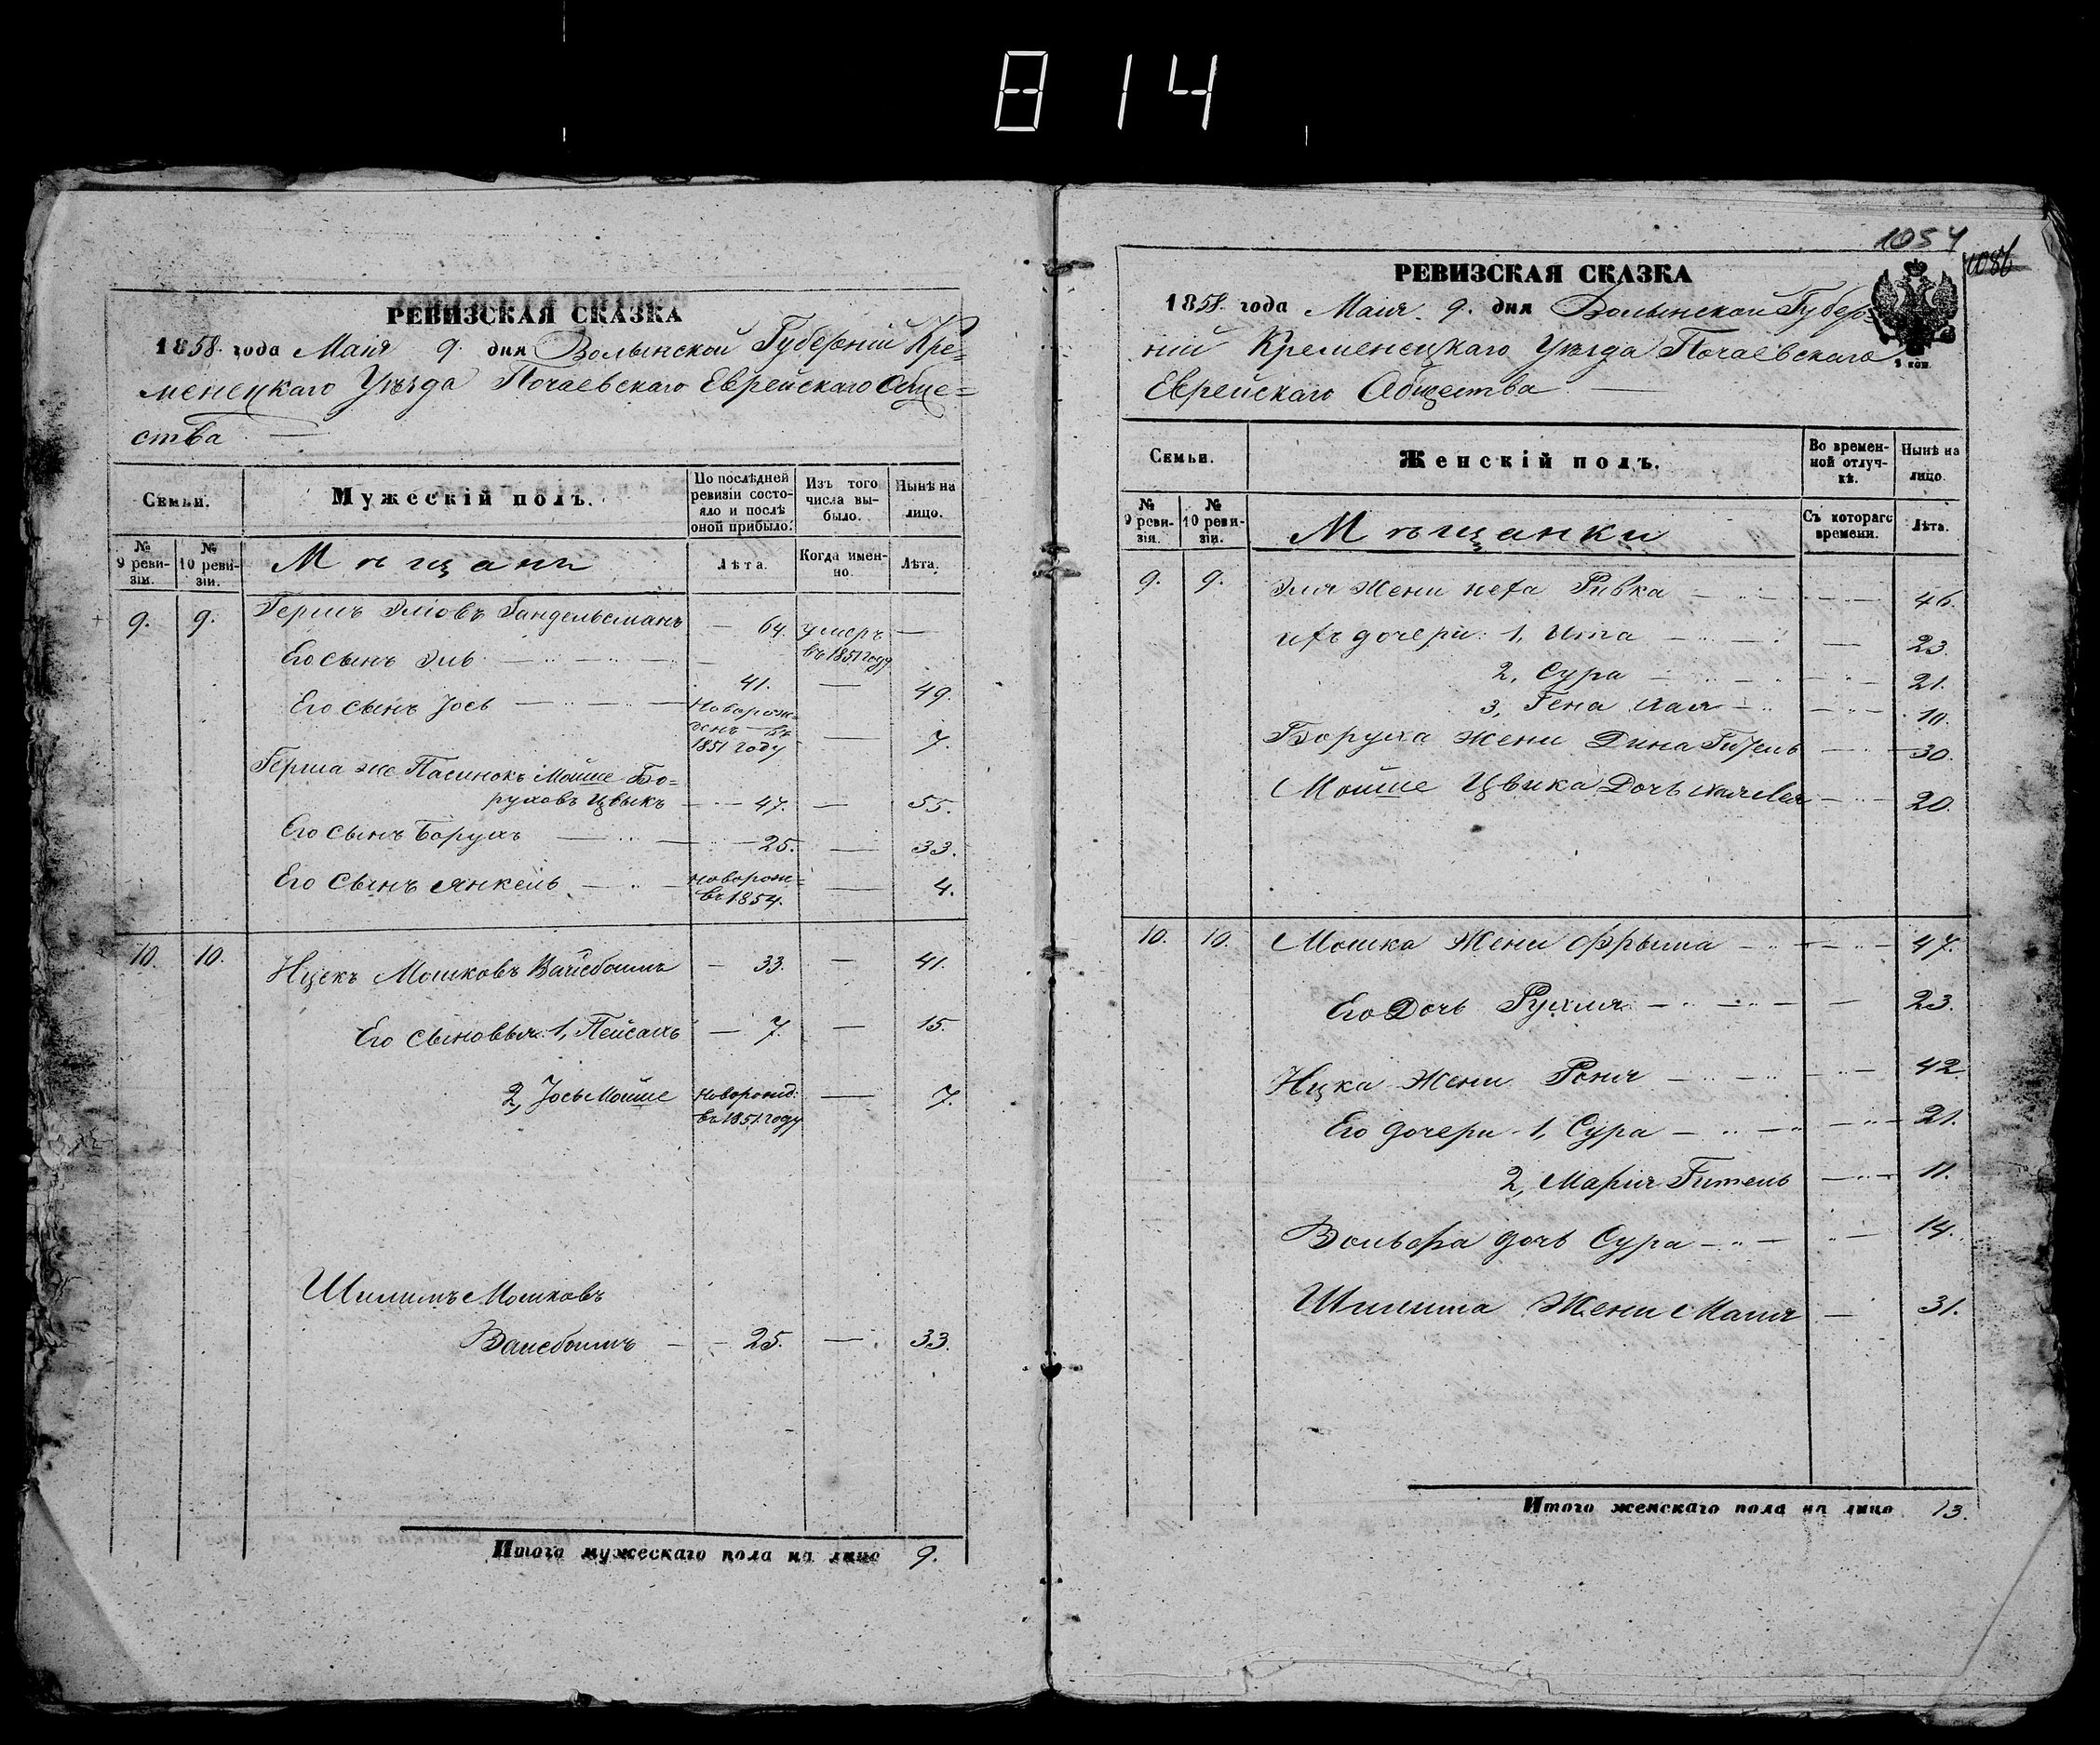 814
РЕВИЗСКАЯ СКАЗКА
1858. года Маія 9. дня Волынской Губерніи Кре=
менецкаго Уѣзда Почаевскаго Еврейскаго Обще=
ства
Семьи.
Мужескій полъ.
По послѣдней ревизіи состояло и послѣ оной прибыло.
Изъ того числа выбыло.
Нынѣ на лицо.
№ 9 ревизіи.
№ 10 ревизіи.
Мѣщанъ
Лѣта.
Когда именно.
Лѣта.
9. 9. Гершъ Эліовъ Гандельсманъ — 64. умеръ въ 1851 году —
Его сынъ Эль 41. — 49.
Его сынъ Іось Новорожденъ въ 1851 году — 7.
Герша же Пасинокъ Мойше Бо=
руховъ Цвыкъ — 47. — 55.
Его сынъ Борухъ — 25. — 33.
Его сынъ Янкель — новорож= въ 1854. — 4.
10. 10. Ицекъ Мошковъ Вайсбоимъ — 33. — 41.
Его сыновья: 1, Пейсахъ — 7. — 15.
2, Іось Мойше Новорожд: въ 1851 году — 7.
Шилимъ Мошковъ
Вайсбоимъ — 25. — 33.
Итого мужескаго пола на лицо 9.
1054
1086
РЕВИЗСКАЯ СКАЗКА
1858. года Маія. 9. дня Волынской Губер=
ніи Кременецкаго Уѣзда Почаевскаго
Еврейскаго Общества
Семьи.
Женскій полъ.
Во временной отлучкѣ.
Нынѣ на лицо.
№ 9 ревизіи.
№ 10 ревизіи.
Мѣщанки
Съ котораго времени.
Лѣта.
9. 9. Эля Жена Ривка — 46.
ихъ дочери: 1, Ита — 23.
2, Сура — 21.
3, Гена Хая — 10.
Боруха жена Дина Гитель — 30.
Мойше Цвика Дочь — 20.
10. 10. Мошка Жена Фрыма — 47.
Его Дочь Рухля — 23.
Ицка Жена Роня — 42.
Его дочери 1, Сура — 21.
2, Марія Гитель — 11.
Вольфа дочь Сура — 14.
Шилима Жена Маля — 31.
Итого женскаго пола на лицо 13.